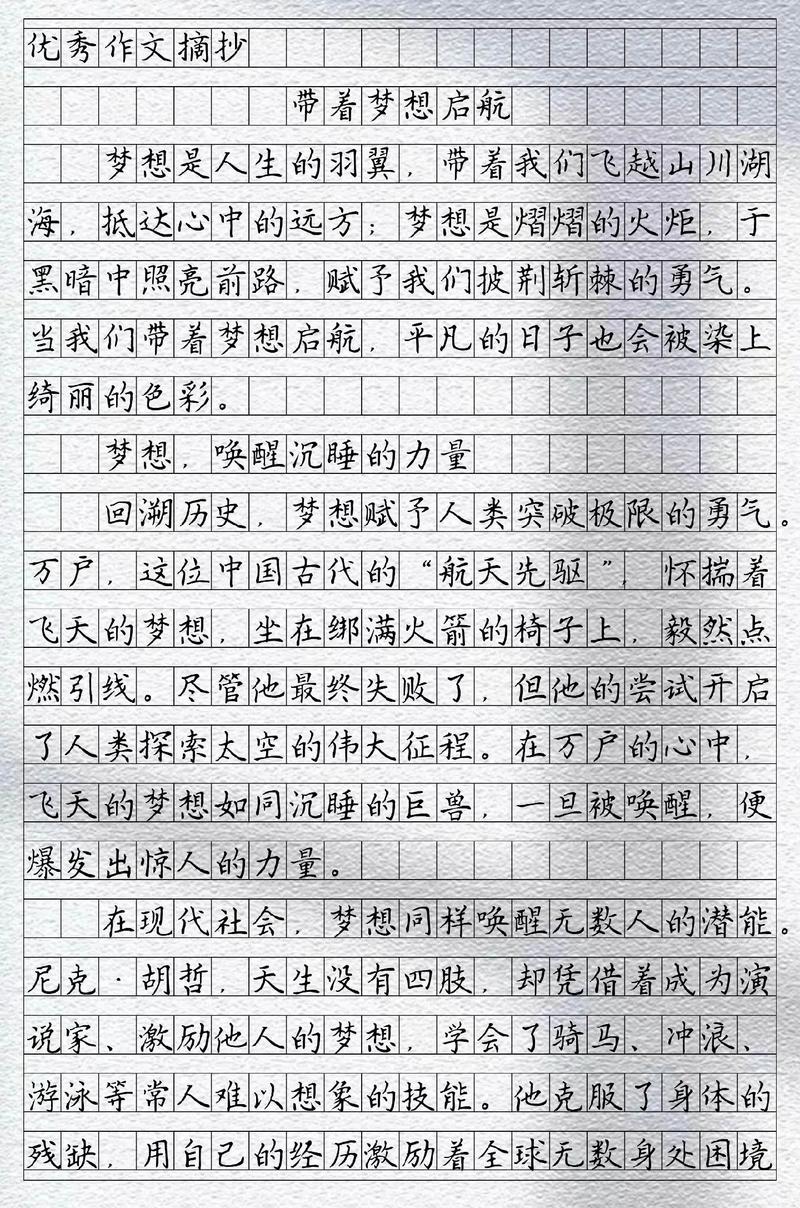 优秀作文摘抄
带着梦想启航
梦想是人生的羽翼，带着我们飞越山川湖
海，抵达心中的远方；梦想是熠熠的火炬，于
黑暗中照亮前路，赋予我们披荆斩棘的勇气。
当我们带着梦想启航，平凡的日子也会被染上
绮丽的色彩。
梦想，唤醒沉睡的力量
回溯历史，梦想赋予人类突破极限的勇气。
万户，这位中国古代的“航天先驱”，怀揣着
飞天的梦想，坐在绑满火箭的椅子上，毅然点
燃引线。尽管他最终失败了，但他的尝试开启
了人类探索太空的伟大征程。在万户的心中，
飞天的梦想如同沉睡的巨兽，一旦被唤醒，便
爆发出惊人的力量。
在现代社会，梦想同样唤醒无数人的潜能。
尼克·胡哲，天生没有四肢，却凭借着成为演
说家、激励他人的梦想，学会了骑马、冲浪、
游泳等常人难以想象的技能。他克服了身体的
残缺，用自己的经历激励着全球无数身处困境